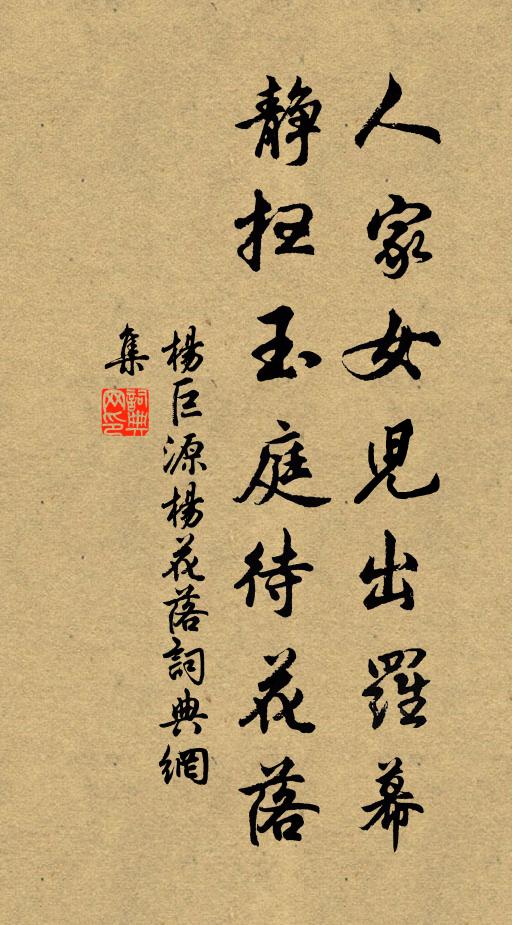 人家女兒出羅幕
静扫玉庭待花落
楊巨源楊花落詞典網
集
詞典網印